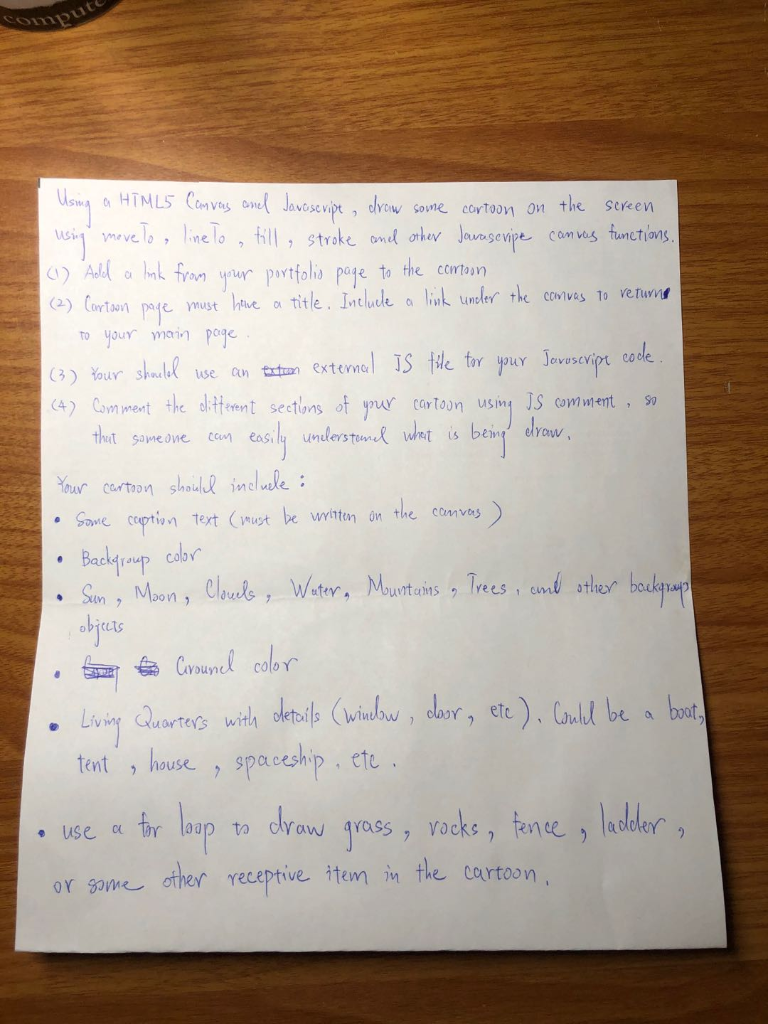 compute
Using a HTML5 Canvas and Javascript, draw some cartoon on the screen
using moveTo, lineTo, fill, stroke and other Javascripe canvas functions.
(1) Add a link from your portfolio page to the cartoon
(2) Cartoon page must have a title. Include a link under the canvas to return
to your main page.
(3) Your should use an external JS file for your Javascript code.
(4) Comment the different sections of your cartoon using JS comment, so
that someone can easily understand what is being draw.
Your cartoon should include:
• Some caption text (must be written on the canvas)
• Backgroup color
• Sun, Moon, Clouds, Water, Mountains, Trees, and other backgroup
objects
• Ground color
• Living Quarters with details (window, door, etc). Could be a boat,
tent, house, spaceship. etc.
• use a for loop to draw grass, rocks, fence, ladder,
or some other receptive item in the cartoon.